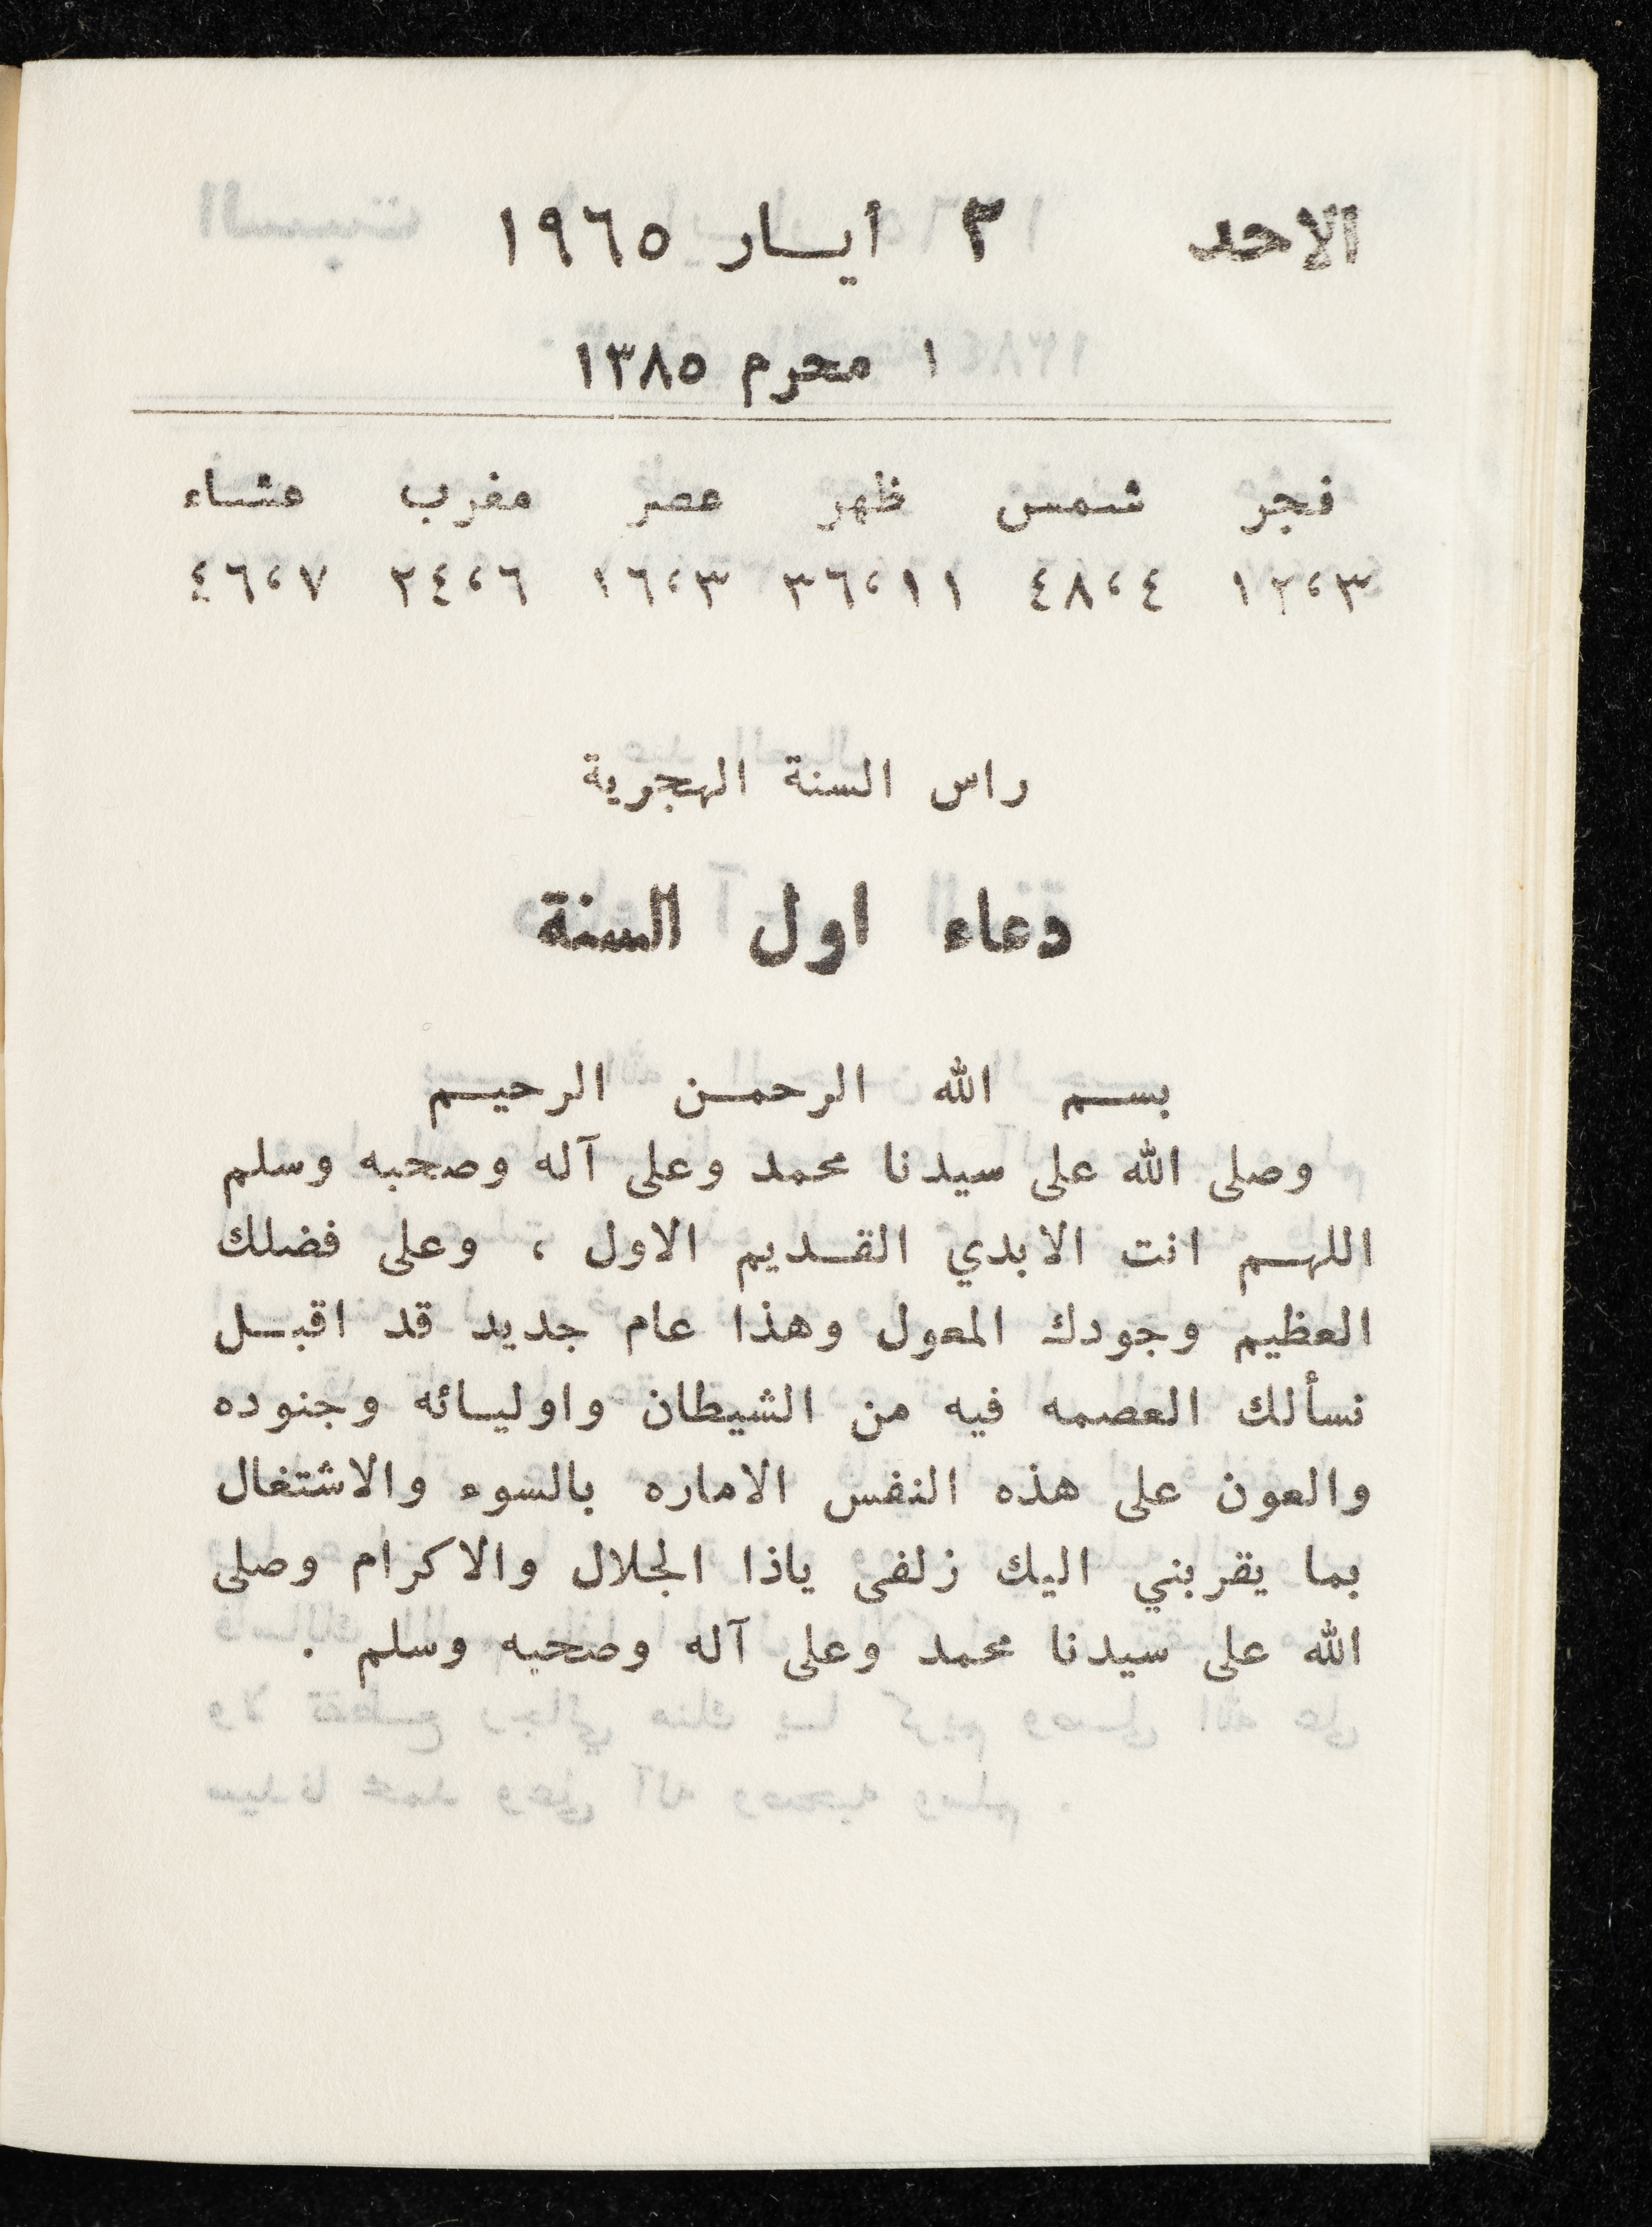 الاحد ٢ أيـار ١٩٦٥
١ محرم ١٣٨٥
فجر شمس ظهر عصر مغرب عشاء
١٢،٣ ٤٨،٤ ٣٦،١١ ١٦،٣ ٢٤،٦ ٤٦،٧
راس السنة الهجرية
دعاء اول السنة
بسم الله الرحمن الرحيم
وصلى الله على سيدنا محمد وعلى آله وصحبه وسلم
اللهم انت الابدي القديم الاول ، وعلى فضلك
العظيم وجودك المعول وهذا عام جديد قد اقبل
نسألك العصمه فيه من الشيطان واوليائه وجنوده
والعون على هذه النفس الاماره بالسوء والاشتغال
بما يقربني اليك زلفى ياذا الجلال والاكرام وصلى
الله على سيدنا محمد وعلى آله وصحبه وسلم .